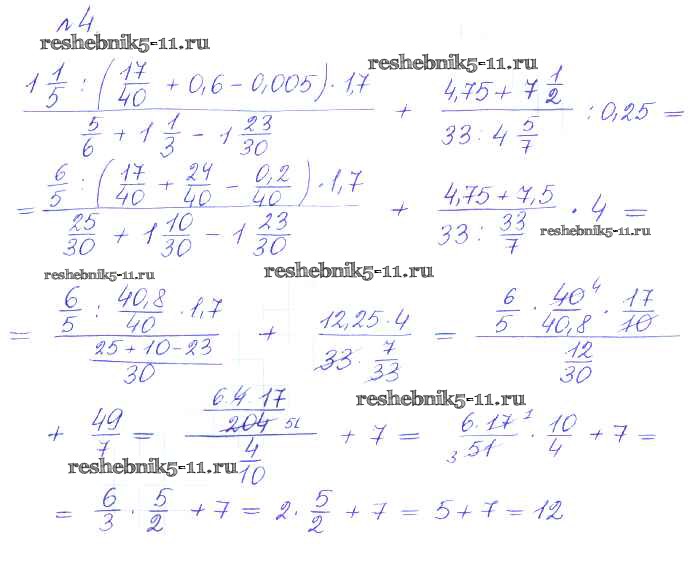 №4
reshebnik5-11.ru
reshebnik5-11.ru
1 1/5 : (17/40 + 0,6 - 0,005) · 1,7 / 5/6 + 1 1/3 - 1 23/30 + 4,75 + 7 1/2 / 33 : 4 5/7 : 0,25 =
= 6/5 : (17/40 + 24/40 - 0,2/40) · 1,7 / 25/30 + 1 10/30 - 1 23/30 + 4,75 + 7,5 / 33 : 33/7 · 4 =
reshebnik5-11.ru
reshebnik5-11.ru
reshebnik5-11.ru
= 6/5 : 40,8/40 · 1,7 / 25+10-23/30 + 12,25 · 4 / 33 · 7/33 = 6/5 · 40 4/40,8 · 17/10 / 12/30
reshebnik5-11.ru
+ 49/7 = 6·4·17/204 51 / 4/10 + 7 = 6·17 1/3 51 · 10/4 + 7 =
reshebnik5-11.ru
= 6/3 · 5/2 + 7 = 2 · 5/2 + 7 = 5 + 7 = 12